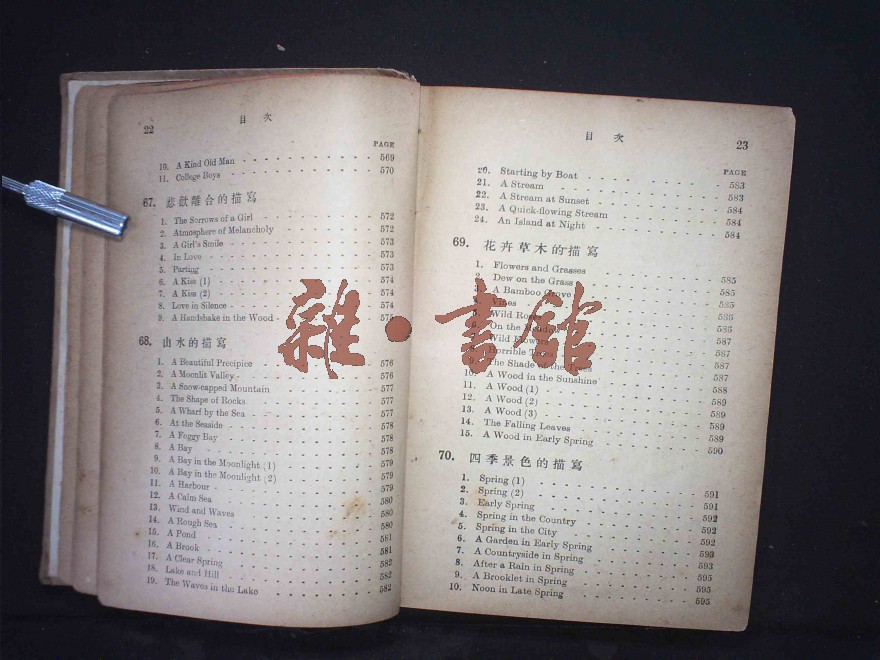 22
目 次
PAGE
10. A Kind Old Man 569
11. College Boys 570
67. 悲歡離合的描寫
1. The Sorrows of a Girl 572
2. Atmosphere of Melancholy 572
3. A Girl's Smile 573
4. In Love 573
5. Parting 573
6. A Kiss (1) 574
7. A Kiss (2) 574
8. Love in Silence 574
9. A Handshake in the Wood
68. 山水的描寫
1. A Beautiful Precipice 576
2. A Moonlit Valley 576
3. A Snow-capped Mountain 577
4. The Shape of Rocks 577
5. A Wharf by the Sea 577
6. At the Seaside 578
7. A Foggy Bay 578
8. A Bay 578
9. A Bay in the Moonlight (1) 579
10. A Bay in the Moonlight (2) 579
11. A Harbour 579
12. A Calm Sea 580
13. Wind and Waves 580
14. A Rough Sea 580
15. A Pond 581
16. A Brook 581
17. A Clear Spring 582
18. Lake and Hill 582
19. The Waves in the Lake 582
目 次
23
PAGE
20. Starting by Boat 583
21. A Stream 583
22. A Stream at Sunset 584
23. A Quick-flowing Stream 584
24. An Island at Night 584
69. 花卉草木的描寫
1. Flowers and Grasses 585
2. Dew on the Grass 585
3. A Bamboo Grove 585
Vines 586
Wild Roses 586
On the Meadow 587
Wild Flowers 587
Horrible Trees 587
The Shade of the Trees 587
10. A Wood in the Sunshine 588
11. A Wood (1) 589
12. A Wood (2) 589
13. A Wood (3) 589
14. The Falling Leaves 589
15. A Wood in Early Spring 590
70. 四季景色的描寫
1. Spring (1) 591
2. Spring (2) 591
3. Early Spring 592
4. Spring in the Country 592
5. Spring in the City 592
6. A Garden in Early Spring 593
7. A Countryside in Spring 593
8. After a Rain in Spring 595
9. A Brooklet in Spring 595
10. Noon in Late Spring 595
雜·書館